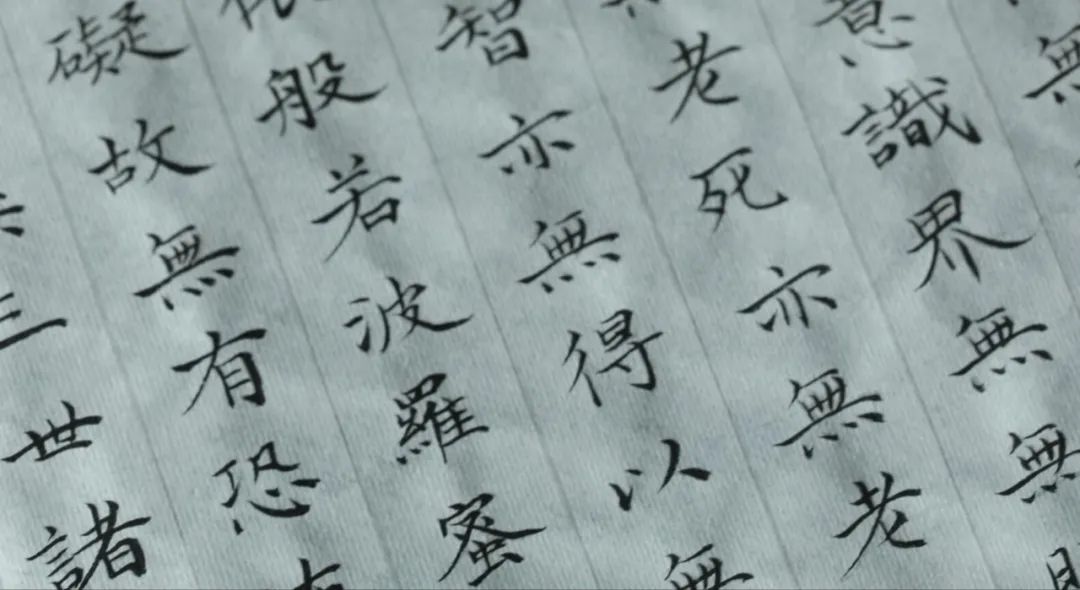 無
意識界無無
老死亦無老
智亦無得以無
般若波羅蜜
礙故無有恐
三世諸